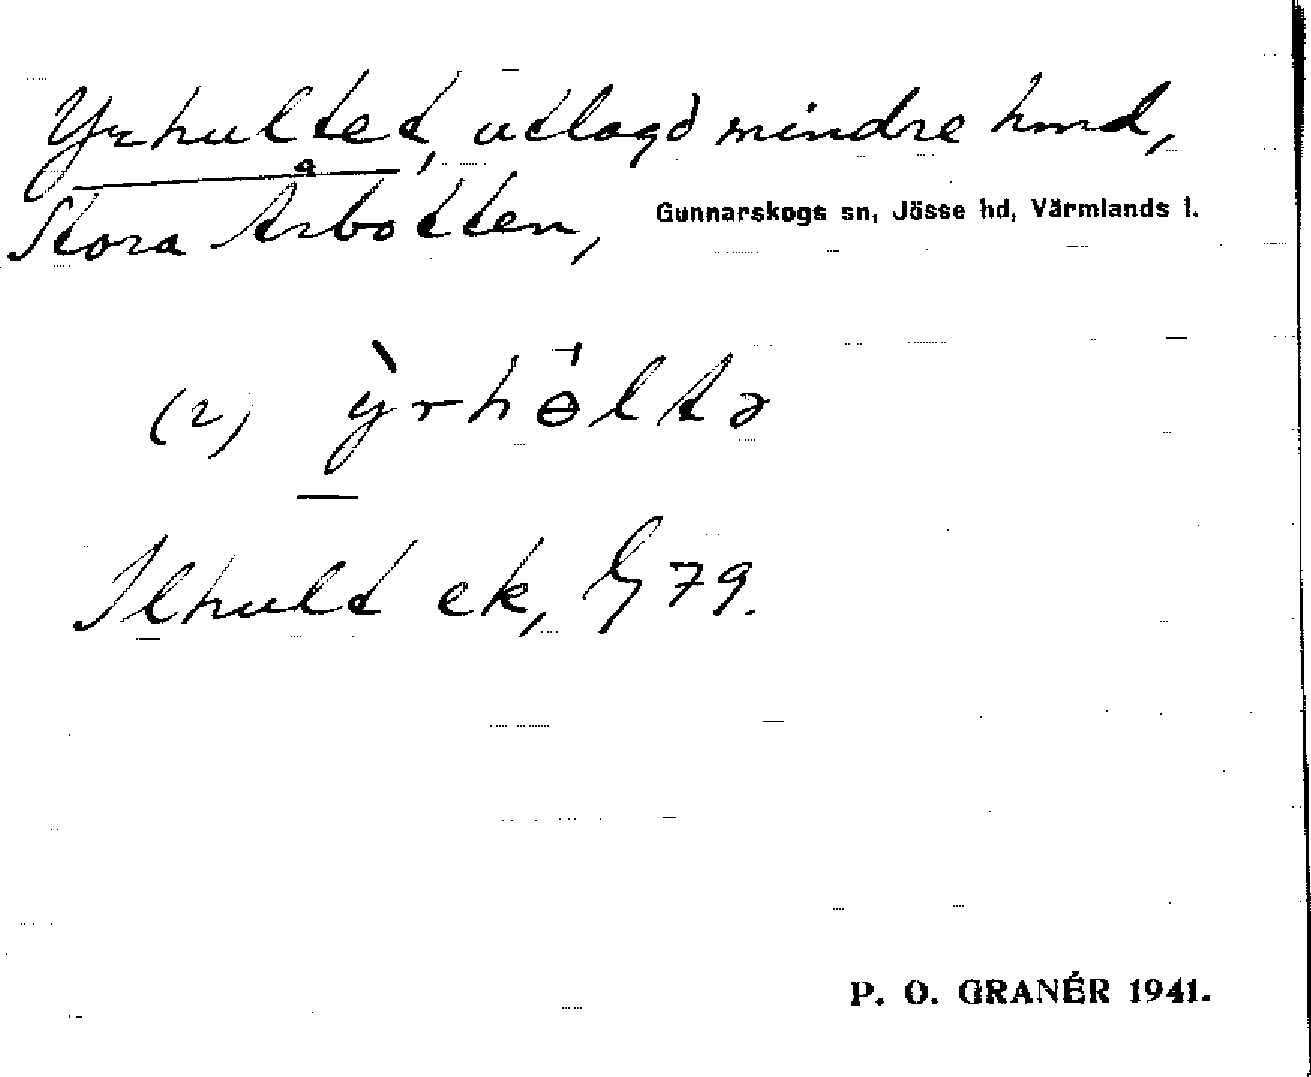 Yrhultet, utlagd mindre hmd,
Stora Årbotten, Gunnarskogs sn, Jösse hd, Värmlands l.
(2) ỳrhөltə
Ilhult ek, G 79.
P. O. GRANÉR 1941.